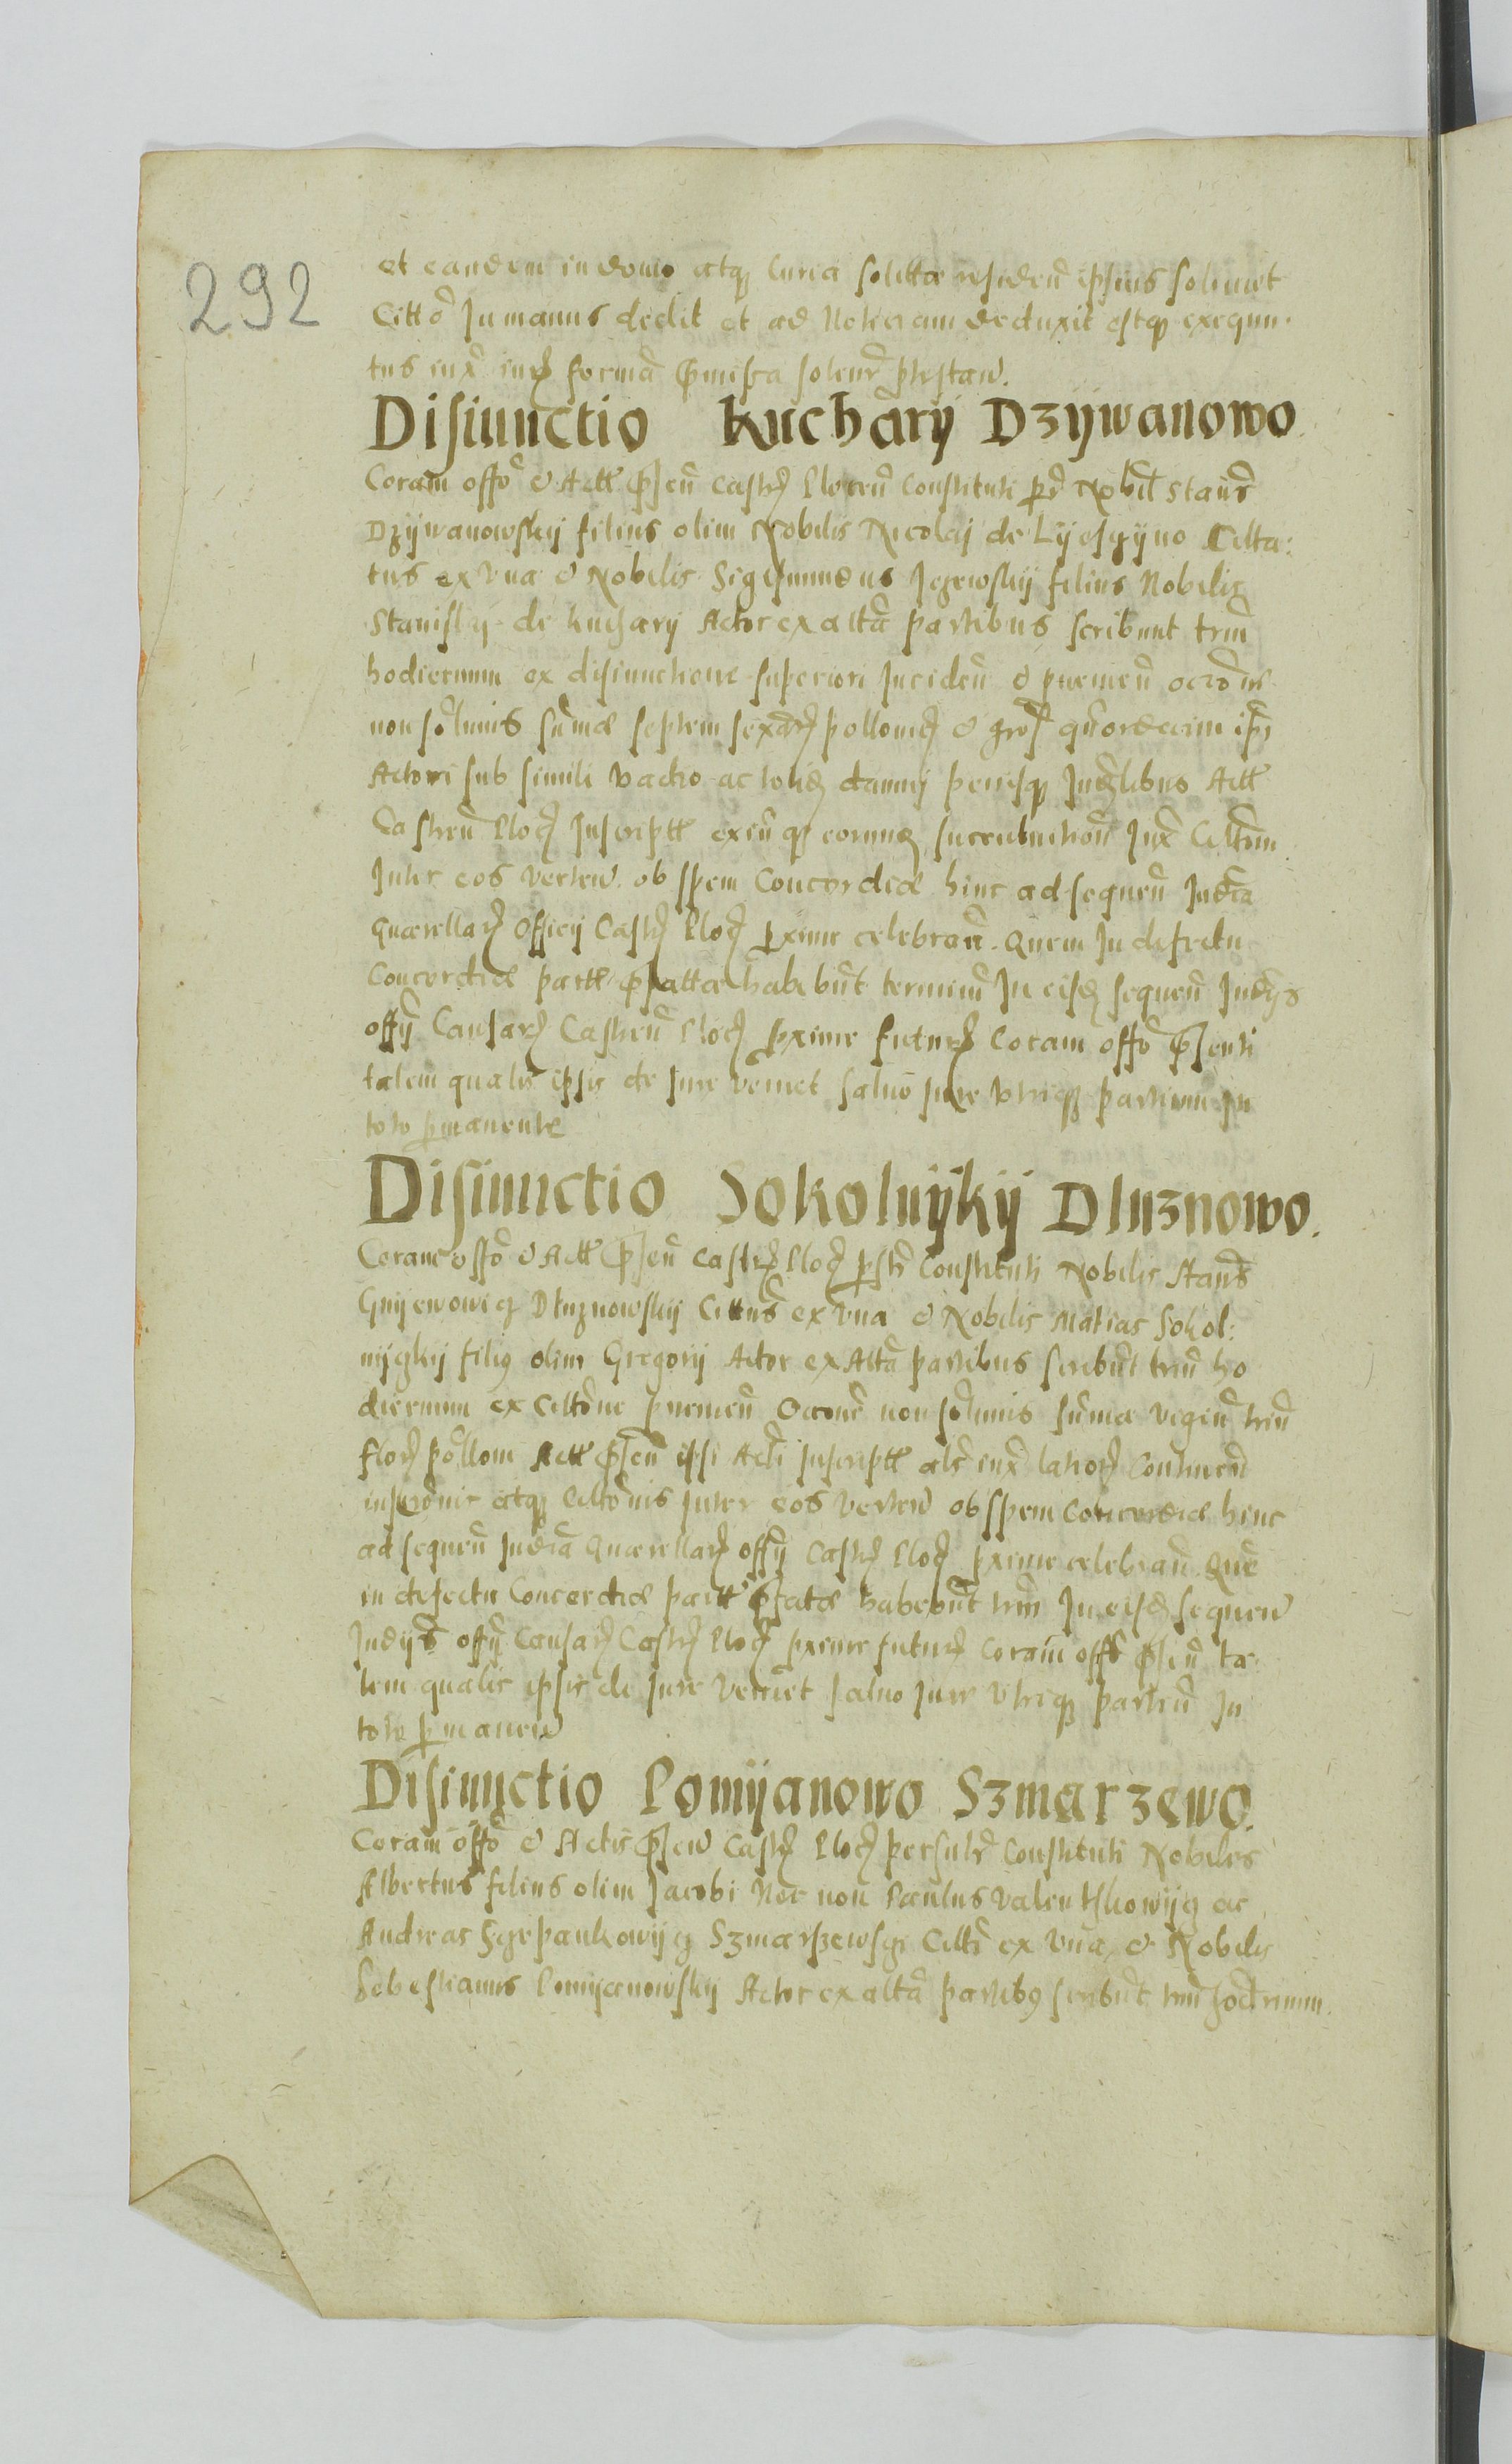 292
et eandem in domo atq curia solitta residen ipsius solius et
Citto In manus dedit et ad Noticiam deduxit estq exequu.
tus iux iur forma pmissa solenr pstan.
Disiunctio Kuchary Dzywanowo
Coram offo & Act psen castr Plocen constituti per Nobil Stans
Dzywanowsky filius olim Nobilis Nicolaj de Lyeszyno Citta:
tus ex vna & Nobilis Sigismundus Jezewsky filius Nobilis
Stanisly de kuchary Actor ex altta partibus scribunt trm
hodiernum ex disiunctione superiori Inciden & pnemen occois
non solunis suma septem sexar pollonic & gros quordecim ipi
Actori sub simili vadio ac totid damnj penisq Inglibus Act
Castren Ploc Inscriptt eorum succubution Jux Cittom
Inter eos verten ob spem Concordiæ hinc ad sequen Judia
Quærellar Officij Castr Ploc pxime celebran. Quem In defectu
Concordiæ partt psattæ habebunt terminu In eisd sequen Judijs
offij Causar Castren Ploc pxime futur Coram offo psenti
talem qualis ipsis de Jure veniet saluo Jure vtriq partium In
toto pmanente
Disiunctio Sokolnijkij Dluznowo.
Coram offo & Act psen castr Ploc pslr Constituti Nobilis Stans
Gnyewowicz Dluznowsky Cittus ex vna & Nobilis Matias Sokol:
nijczkij filiq olim Gregorij Actor ex Altta partibus scribut trm ho
diernum ex Cittone pnemen Occone non solunis suma vigin triu
flor pollom Act psen ipsi Acti Inscriptt als iux lacior Continen
inscronis atq Cittonis Inter eos verten ob spem Concordiæ hinc
ad sequen Judia Quærellar offij Castr Ploc pxime celebran Que
in defectu Concordiæ partt pfatæ habebunt trm In eisd sequen
Judijs offij Causar Castr Ploc pxime futur Coram offo psen ta
lem qualis ipsis de Jure veniet saluo Jure vtriq partiu In
toto pmanen
Disiunctio Pomijanowo Szmarzewo.
Coram offo & Actis psen Castr Ploc persnlr Constituti Nobiles
Albertus filius olim Jacobi Nec non Paulus Valentkowijcz ac
Andreas Szczepankowijcz Szmarszewsczi Citti ex vna & Nobilis
Sebestianus Pomijanowskij Actor ex altta partibq scribut trm hodiernum.